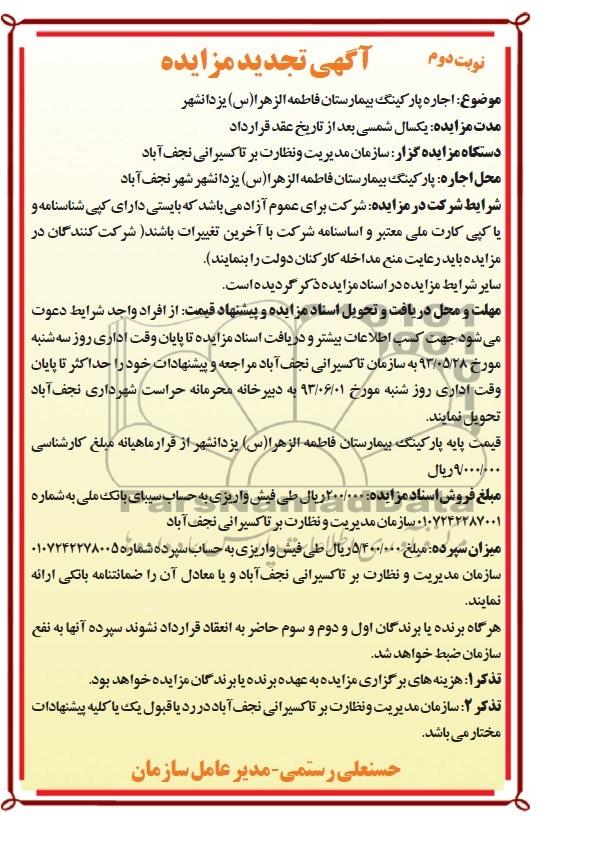 نوبت دوم
آگهی تجدید مزایده
موضوع: اجاره پارکینگ بیمارستان فاطمه الزهرا(س) یزدانشهر
مدت مزایده: یکسال شمسی بعد از تاریخ عقد قرارداد
دستگاه مزایده گزار: سازمان مدیریت و نظارت بر تاکسیرانی نجف آباد
محل اجاره: پارکینگ بیمارستان فاطمه الزهرا(س) یزدانشهر شهر نجف آباد
شرایط شرکت در مزایده: شرکت برای عموم آزاد می باشد که بایستی دارای کپی شناسنامه و
یا کپی کارت ملی معتبر و اساسنامه شرکت با آخرین تغییرات باشند( شرکت کنندگان در
مزایده باید رعایت منع مداخله کارکنان دولت را بنمایند).
سایر شرایط مزایده در اسناد مزایده ذکر گردیده است.
مهلت و محل دریافت و تحویل اسناد مزایده و پیشنهاد قیمت: از افراد واجد شرایط دعوت
می شود جهت کسب اطلاعات بیشتر و دریافت اسناد مزایده تا پایان وقت اداری روز سه شنبه
مورخ ۹۳/۰۵/۲۸ به سازمان تاکسیرانی نجف آباد مراجعه و پیشنهادات خود را حداکثر تا پایان
وقت اداری روز شنبه مورخ ۹۳/۰۶/۰۱ به دبیرخانه محرمانه حراست شهرداری نجف آباد
تحویل نمایند.
قیمت پایه پارکینگ بیمارستان فاطمه الزهرا(س) یزدانشهر از قرار ماهیانه مبلغ کارشناسی
۹/۰۰۰/۰۰۰ ریال
مبلغ فروش اسناد مزایده: ۲۰۰/۰۰۰ ریال طی فیش واریزی به حساب سیبای بانک ملی به شماره
۰۱۰۷۲۴۲۲۸۷۰۰۱ سازمان مدیریت و نظارت بر تاکسیرانی نجف آباد
میزان سپرده: مبلغ ۵/۴۰۰/۰۰۰ ریال طی فیش واریزی به حساب سپرده شماره ۰۱۰۷۲۴۲۲۷۸۰۰۵
سازمان مدیریت و نظارت بر تاکسیرانی نجف آباد و یا معادل آن را ضمانتنامه بانکی ارائه
نمایند.
هرگاه برنده یا برندگان اول و دوم و سوم حاضر به انعقاد قرارداد نشوند سپرده آنها به نفع
سازمان ضبط خواهد شد.
تذکر۱: هزینه های برگزاری مزایده به عهده برنده یا برندگان مزایده خواهد بود.
تذکر۲: سازمان مدیریت و نظارت بر تاکسیرانی نجف آباد در رد یا قبول یک یا کلیه پیشنهادات
مختار می باشد.
حسنعلی رستمی-مدیر عامل سازمان
ParsNamadData